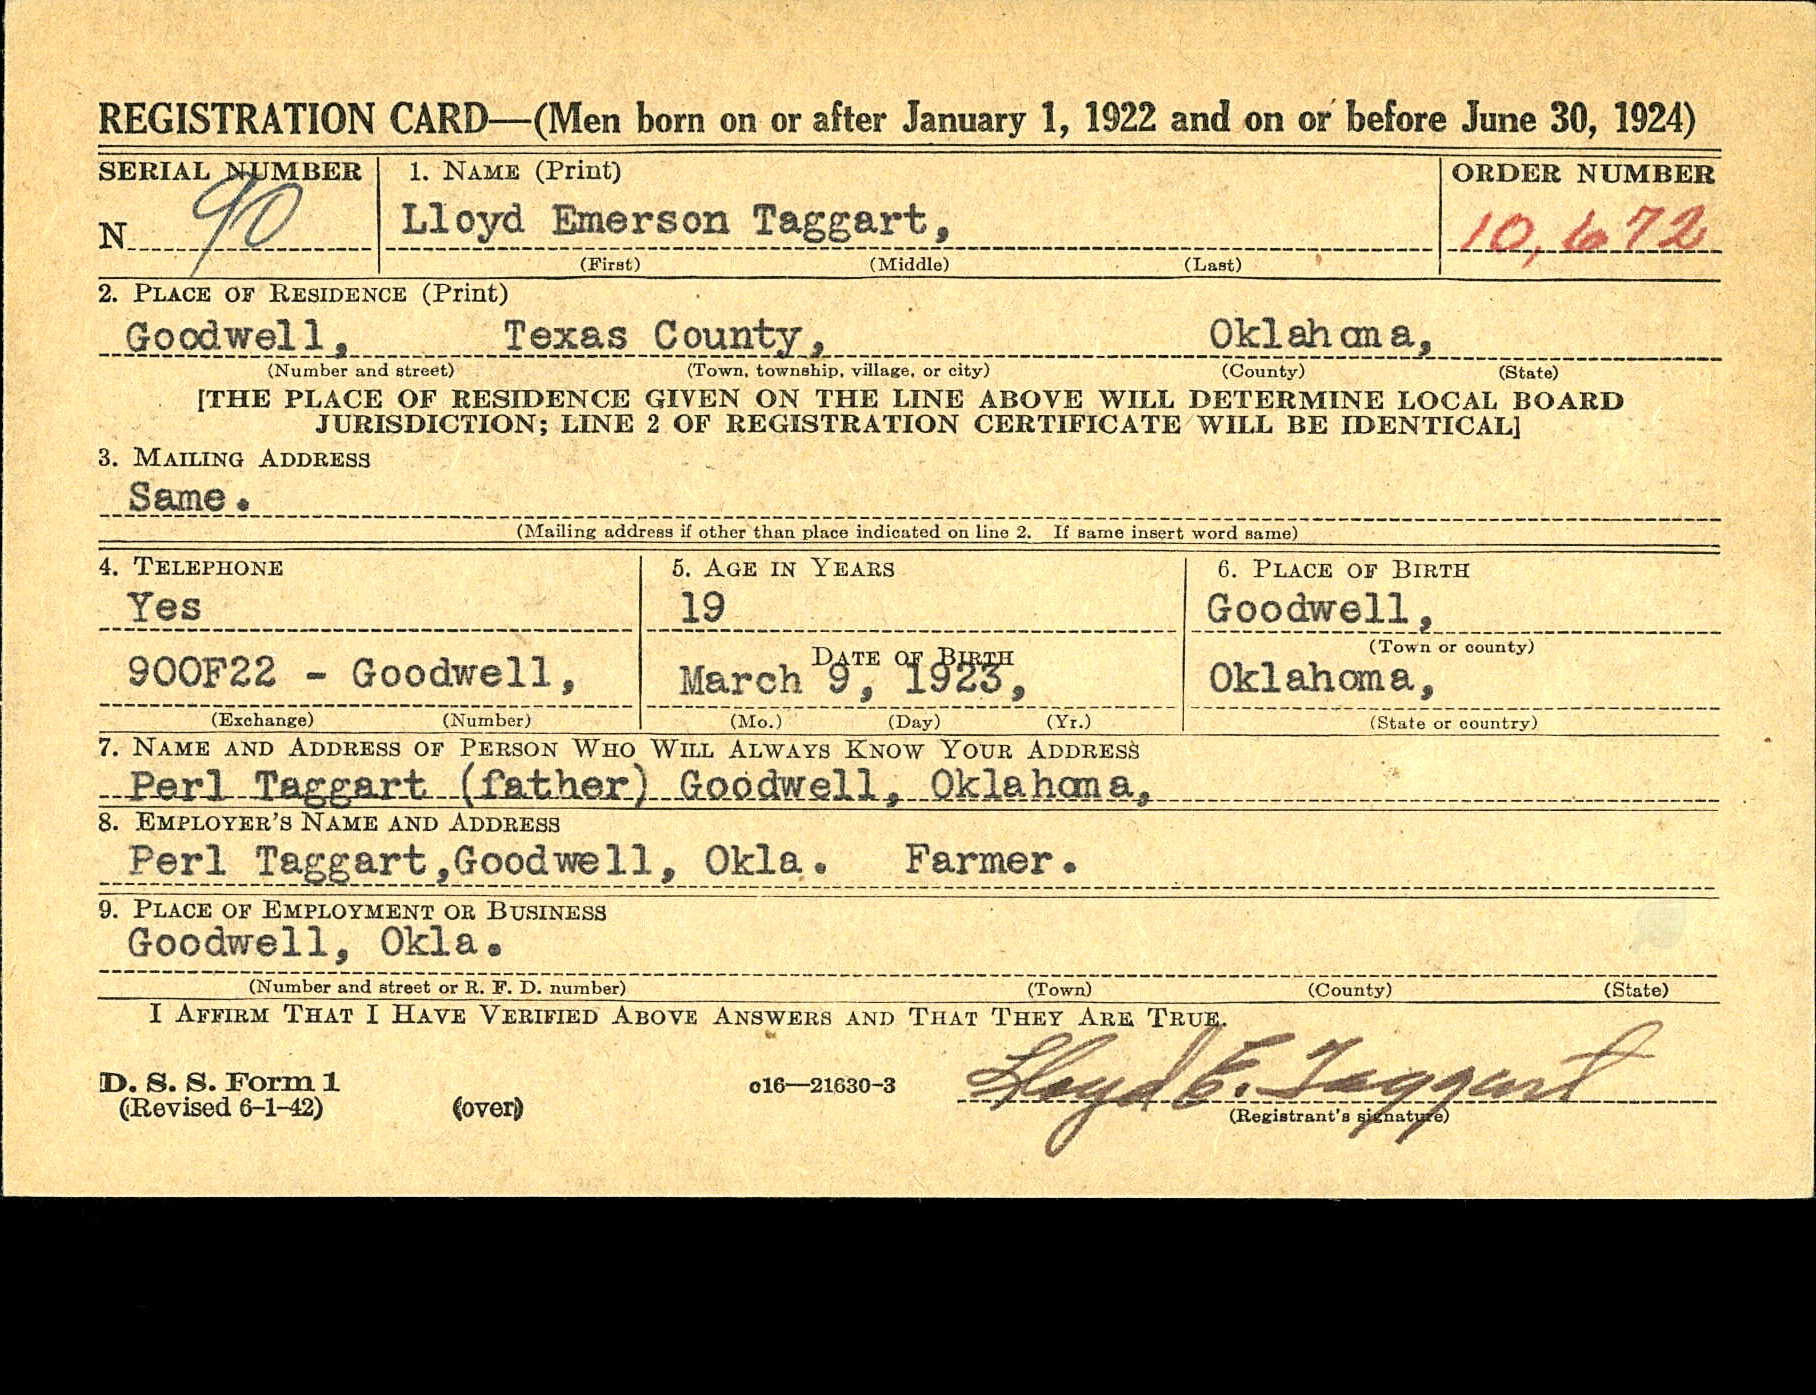 REGISTRATION CARD—(Men born on or after January 1, 1922 and on or before June 30, 1924)
SERIAL NUMBER 1. NAME (Print) ORDER NUMBER
N 90 Lloyd Emerson Taggart, 10,672
(First) (Middle) (Last)
2. PLACE OF RESIDENCE (Print)
Goodwell, Texas County, Oklahoma,
(Number and street) (Town, township, village, or city) (County) (State)
[THE PLACE OF RESIDENCE GIVEN ON THE LINE ABOVE WILL DETERMINE LOCAL BOARD
JURISDICTION; LINE 2 OF REGISTRATION CERTIFICATE WILL BE IDENTICAL]
3. MAILING ADDRESS
Same.
(Mailing address if other than place indicated on line 2. If same insert word same)
4. TELEPHONE 5. AGE IN YEARS 6. PLACE OF BIRTH
Yes 19 Goodwell,
DATE OF BIRTH (Town or county)
900F22 - Goodwell, March 9, 1923, Oklahoma,
(Exchange) (Number) (Mo.) (Day) (Yr.) (State or country)
7. NAME AND ADDRESS OF PERSON WHO WILL ALWAYS KNOW YOUR ADDRESS
Perl Taggart (father) Goodwell, Oklahoma,
8. EMPLOYER'S NAME AND ADDRESS
Perl Taggart,Goodwell, Okla. Farmer.
9. PLACE OF EMPLOYMENT OR BUSINESS
Goodwell, Okla.
(Number and street or R. F. D. number) (Town) (County) (State)
I AFFIRM THAT I HAVE VERIFIED ABOVE ANSWERS AND THAT THEY ARE TRUE.
D. S. S. Form 1 c16—21630-3 Lloyd E. Taggart
(Revised 6-1-42) (over) (Registrant's signature)